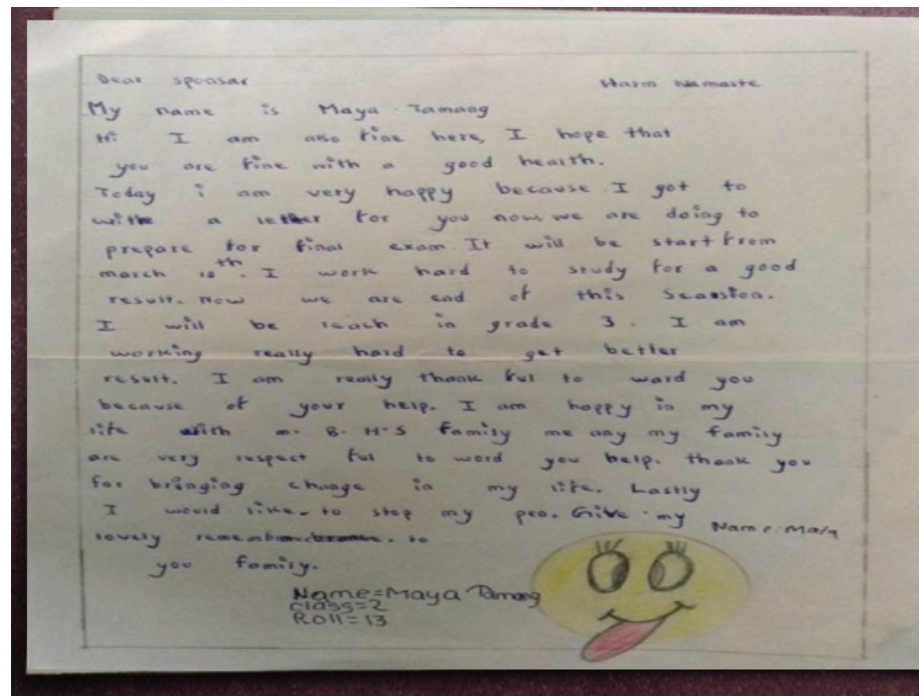 Dear sponsar Warm Namaste
My name is Maya Tamang
Hi I am also fine here, I hope that
you are fine with a good health.
Today i am very happy because I got to
write a letter for you now we are doing to
prepare for final exam. It will be start from
march 18th. I work hard to study for a good
result. Now we are end of this Seassion.
I will be reach in grade 3. I am
working really hard to get better
result. I am really thank ful to ward you
because of your help. I am happy in my
life with m. B. H-S family me any my family
are very respect ful to word you help. thank you
for bringing change in my life. Lastly
I would like to stop my pen. Give my
Name: Maya
lovely remembrance. to
you family.
Name=Maya Tamang
class=2
Roll=13